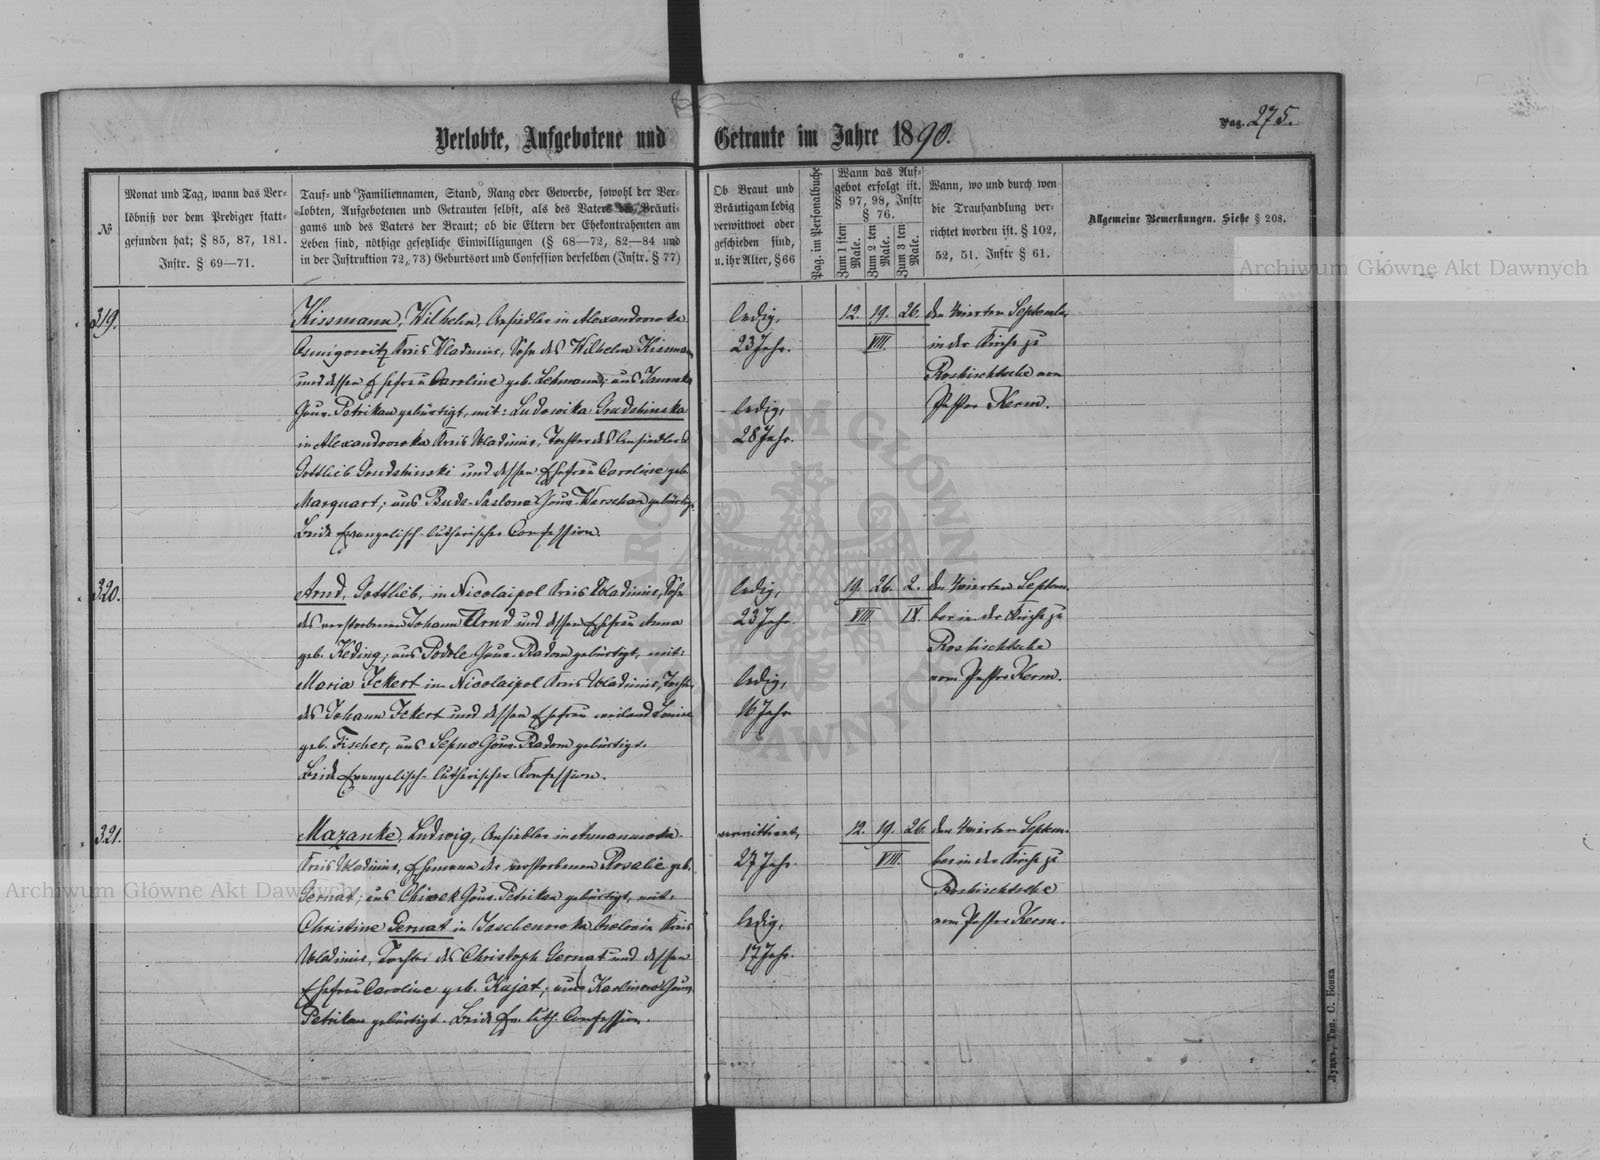 Verlobte, Aufgebotene und Getraute im Jahre 1890.
Pag. 275.
№
Monat und Tag, wann das Ver-
löbniß vor dem Prediger statt-
gefunden hat; § 85, 87, 181.
Instr. § 69—71.
Tauf- und Familiennamen, Stand, Rang oder Gewerbe, sowohl der Ver-
lobten, Aufgebotenen und Getrauten selbst, als des Vaters des Bräuti-
gams und des Vaters der Braut; ob die Eltern der Ehekontrahenten am
Leben sind, nöthige gesetzliche Einwilligungen (§ 68—72, 82—84 und
in der Instruktion 72, 73) Geburtsort und Confession derselben (Instr. § 77)
Ob Braut und
Bräutigam ledig
verwittwet oder
geschieden sind,
u. ihr Alter, § 66
Pag. im Personalbuche
Wann das Auf-
gebot erfolgt ist.
§ 97, 98, Instr
§ 76.
Zum 1 sten Male.
Zum 2 ten Male.
Zum 3 ten Male.
Wann, wo und durch wen
die Trauhandlung ver-
richtet worden ist. § 102,
52, 51. Instr § 61.
Allgemeine Bemerkungen. Siehe § 208.
319.
Kissmann, Wilhelm, Ansiedler in Alexandrowka
Kreis Wladimir, Sohn des Wilhelm Kissmann
und dessen Ehefrau Caroline geb. Lehmann; aus Janowka
Gouv. Petrikau gebürtigt, mit: Ludowika Grudshinska
in Alexandrowka Kreis Wladimir, Tochter des Ansiedlers
Gottlieb Grudshinski und dessen Ehefrau Caroline geb.
Marquart; aus Buda-Saslona Gouv. Warschau gebürtigt.
Beide Evangelisch-lutherischer Confession.
ledig,
23 Jahr.
ledig,
28 Jahr.
12. 19. 26.
VIII.
den 4vierten Septemb.
in der Kirche zu
Roshischtsche von
Pastor Kerm.
320.
Arnd, Gottlieb, in Nicolaipol Kreis Wladimir, Sohn
des verstorbenen Johann Arnd und dessen Ehefrau Anna
geb. Keding; aus Podole Gouv. Radom gebürtigt, mit:
Maria Ickert in Nicolaipol Kreis Wladimir, Tochter
des Johann Ickert und dessen Ehefrau weiland Louise
geb. Fischer, aus Sepno Gouv. Radom gebürtigt.
Beide Evangelisch-lutherischer Konfession.
ledig,
23 Jahr.
ledig,
16 Jahr
19. 26. 2.
VIII. IX.
den 4vierten Septem-
ber in der Kirche zu
Roshischtsche
vom Pastor Kerm.
321.
Mazanke, Ludwig, Ansiedler in Amanuwka
Kreis Wladimir, Ehemann der verstorbenen Rosalie geb.
Gernat; aus Chiwek Gouv. Petrikau gebürtigt, mit:
Christine Gernat in Jaschenowka Kreis
Wladimir, Tochter des Christoph Gernat und dessen
Ehefrau Caroline geb. Kujat; aus Karlinow Gouv.
Petrikau gebürtigt. Beide Ev. luth. Confession.
verwittwet,
27 Jahr.
ledig,
17 Jahr.
12. 19. 26.
VIII.
den 4vierten Septem-
ber in der Kirche zu
Roshischtsche
vom Pastor Kerm.
Луцкъ, Тип. С. Бокка
Archiwum Główne Akt Dawnych
Archiwum Główne Akt Dawnych